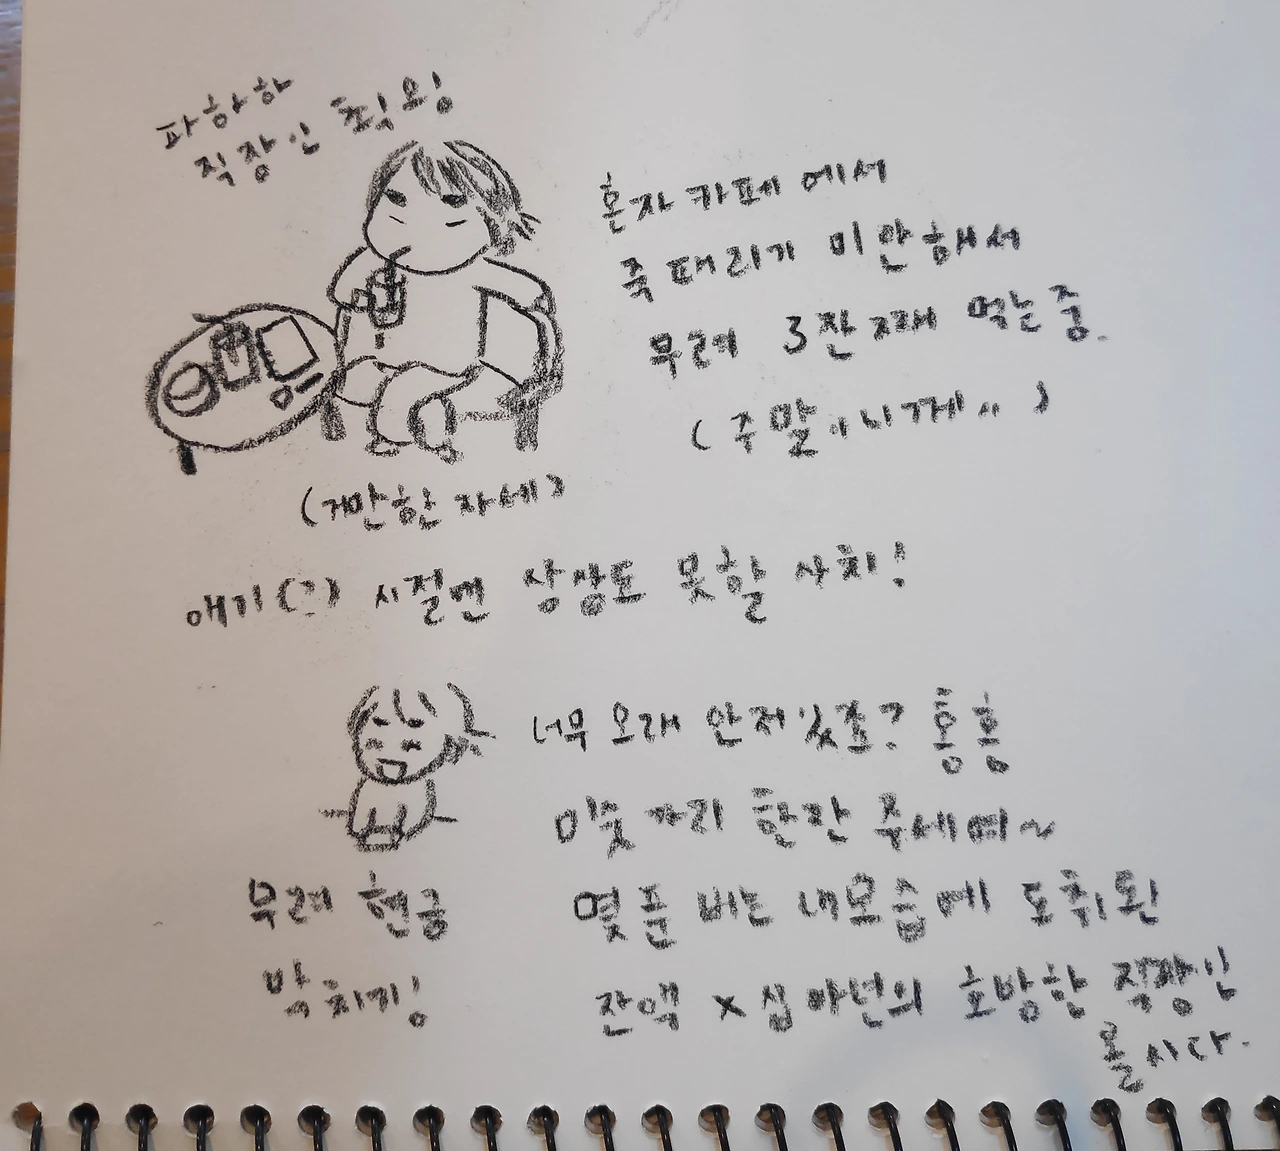 파하하
직장인 최고임
혼자 카페에서
죽때리기 미안해서
무려 3잔째 먹는중.
(주말이니께..)
(거만한 자세)
애기(?) 시절엔 상상도 못할 사치!
너무 오래 안저있죠? 홍홍
미숫가리 한잔 주세여~
무려 현금
박치기!
몇푼 버는 내모습에 도취된
잔액 x십마넌의 호방한 직장인
올시다.